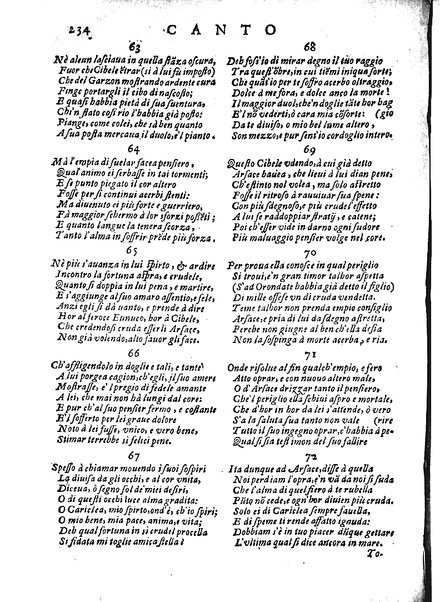 234 CANTO
63
Nè alcun lasciaua in quella stãza oscura,
Fuor che Cibele ẽtrar (sì a lui fu imposto)
Che del Garzon mostrando ardente cura
Finge portargli il cibo di nascosto;
E quasi habbia pietà di sua suentura,
Ch'in stato così rio l'habbia già posto:
Piange, come colei, che sà ben quanto
A sua posta mercaua il duolo, e'l pianto.
64
Mà l'empia di suelar facea pensiero,
Qual animo ei serbasse in tai tormenti;
E se punto piegato il cor altero
Fosse per si continui acerbi stenti:
Ma diuenuto ei più forte e guerriero,
Fà maggior schermo à lor sforzi possẽti;
E quanto langue la tenera scorza,
Tanto l'alma in soffrir prẽde più forza.
65
Nè più s'auanza in lui spirto, & ardire
Incontro la fortuna aspra, e crudele,
Quanto si doppia in lui pena, e martire,
E s'aggiunge al suo amaro assentio, e fele,
Anzi egli si dà vanto, e prende à dire
Hor al feroce Eunuco, hor à Cibele,
Che credendosi cruda esserli Arsace,
Non già volendo, alto fauor gli face.
66
Ch'affligendolo in doglie tali, e tante
A lui porgea cagion, ch'egli, il suo amere
Mostrasse, e'l pregio di fedele amante
A lei, che mai non hà lungi dal core:
E pur ch'al suo pensier fermo, e costante
E'l sofferto per lei graue dolore
Noto à lei fusse, vnico, e vero bene,
Stimar terrebbe si felici pene.
67
Spesso à chiamar mouendo i suoi sospiri
La diuisa da gli occhi, e al cor vnita,
Diceua, ò segno sol de' miei desiri,
O di questi occhi luce alma gradita:
O Cariclea, mio spirto, ond'è, ch'io spiri;
O mio bene, mia pace, anima, e vita;
Deh qual fortuna in si crudel procella
Si fidata mi toglie amica stella!
68
Deh foss'io di mirar degno il tuo raggio
Tra quest'õbre, in cui tiẽmi iniqua sorte;
Che quanto per te soffro acerbo oltraggio,
Dolce à me fora, e dolce anco la morte!
Il maggior duol, che'n doglie tãte hor bag
E'l nõ vederti, ò cara mia cõsorte: (gio
Da te diuiso, o mio bel lume altero,
Son mezzo, e pur sent'io cordoglio intero.
69
Questo Cibele vdendo, à cui già detto
Arsace hauea, che lieui à lui dian pene;
Ch'estinto nol volea, ma solo astretto
Fosse il ritroso à rauuiuar sua spene:
Con più sdegno, e piu crudel effetto
A lui se raddoppiar stratij, e catene;
Poi ch'esser vide in darno ogni sudore
Più maluaggio pensier volge nel core.
70
Per proua ella conosce in qual periglio
Si troui, e'n gran timor talhor aspetta
(S'ad Orondate habbia ciò detto il figlio)
Di mille offese vn dì cruda vendetta.
Teme talhor non prenda empio consiglio
Arsace, e pria di lui da sdegno astretta,
Perche non giugne al ben ch'ella desia
Non la sospinga à morte acerba, e ria.
71
Onde risolue al fin qualch'empio, e fero
Atto oprar, e con nuouo altero mals
O d'Arsace drizzar tanto il pensiero,
Che periglio ella schiui aspro e mortale,
Che d'hor in hor da lei s'attende, ò vero
S'à la saluta sua tanto non vale (rire
Tutto il suo ingegno oprar, c'habbia à pe-
Qual si sia testimon del suo fallire
72
Ita dunque ad Arsace, disse à quella
Noi perdiam l'opra, e'n vã dà noi si suda
Che l'alma di quel fiero à te rubella
Plito nõ cede, e ogn'hor diuien più cruda.
Solo ei di Cariclea sempre fauella,
E di speme ti rende affatto ignuda:
Dobbiam s'è in tuo piacer dũque gettare
L'vltima qual si dice ancora in mare.
To.